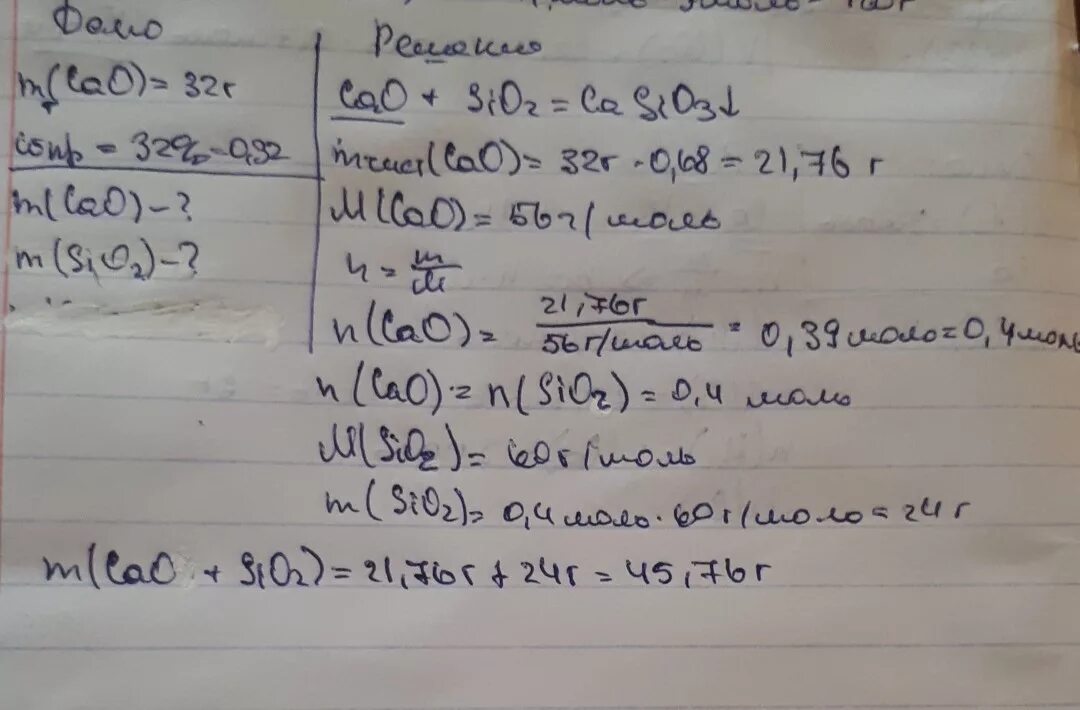 Дано
m(CaO) = 32г
ωпр = 32% = 0,32
m(CaO) - ?
m(SiO2) - ?
Решение
CaO + SiO2 = CaSiO3↓
mчист(CaO) = 32г · 0,68 = 21,76 г
M(CaO) = 56 г/моль
n = m/M
n(CaO) = 21,76г / 56г/моль = 0,39 моль = 0,4 моль
n(CaO) = n(SiO2) = 0,4 моль
M(SiO2) = 60 г/моль
m(SiO2) = 0,4 моль · 60 г/моль = 24 г
m(CaO + SiO2) = 21,76 г + 24 г = 45,76 г